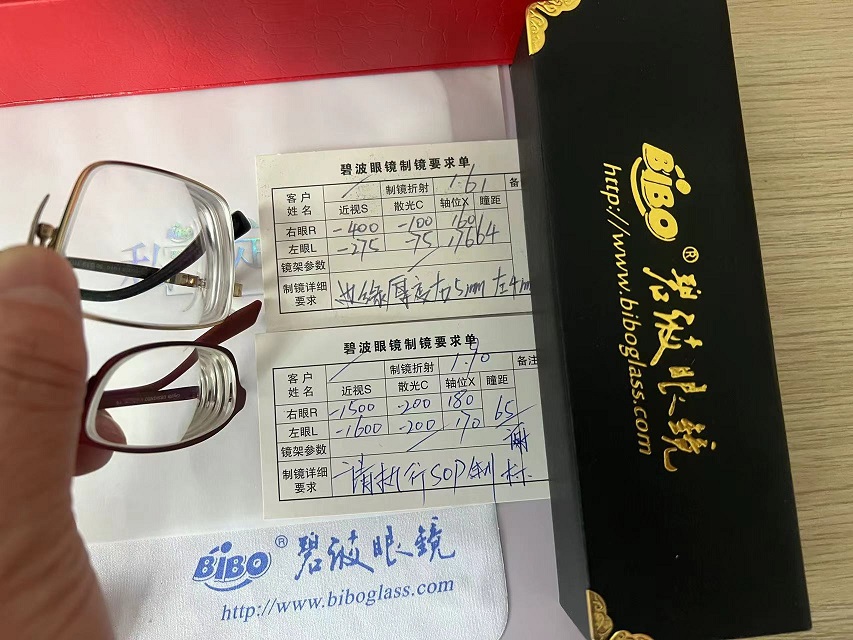 碧波眼镜制镜要求单
客户姓名 制镜折射 1.61 备
近视S 散光C 轴位X 瞳距
右眼R -400 -100 160
左眼L -275 -75 176 64
镜架参数
制镜详细要求 边缘厚度右5mm 左4m
碧波眼镜制镜要求单
客户姓名 制镜折射 1.90 备注
近视S 散光C 轴位X 瞳距
右眼R -1500 -200 180 65
左眼L -1600 -200 170
镜架参数
制镜详细要求 请执行SOP
BiBO® 碧波眼镜
http://www.biboglass.com
BiBO® 碧波眼镜
http://www.biboglass.com